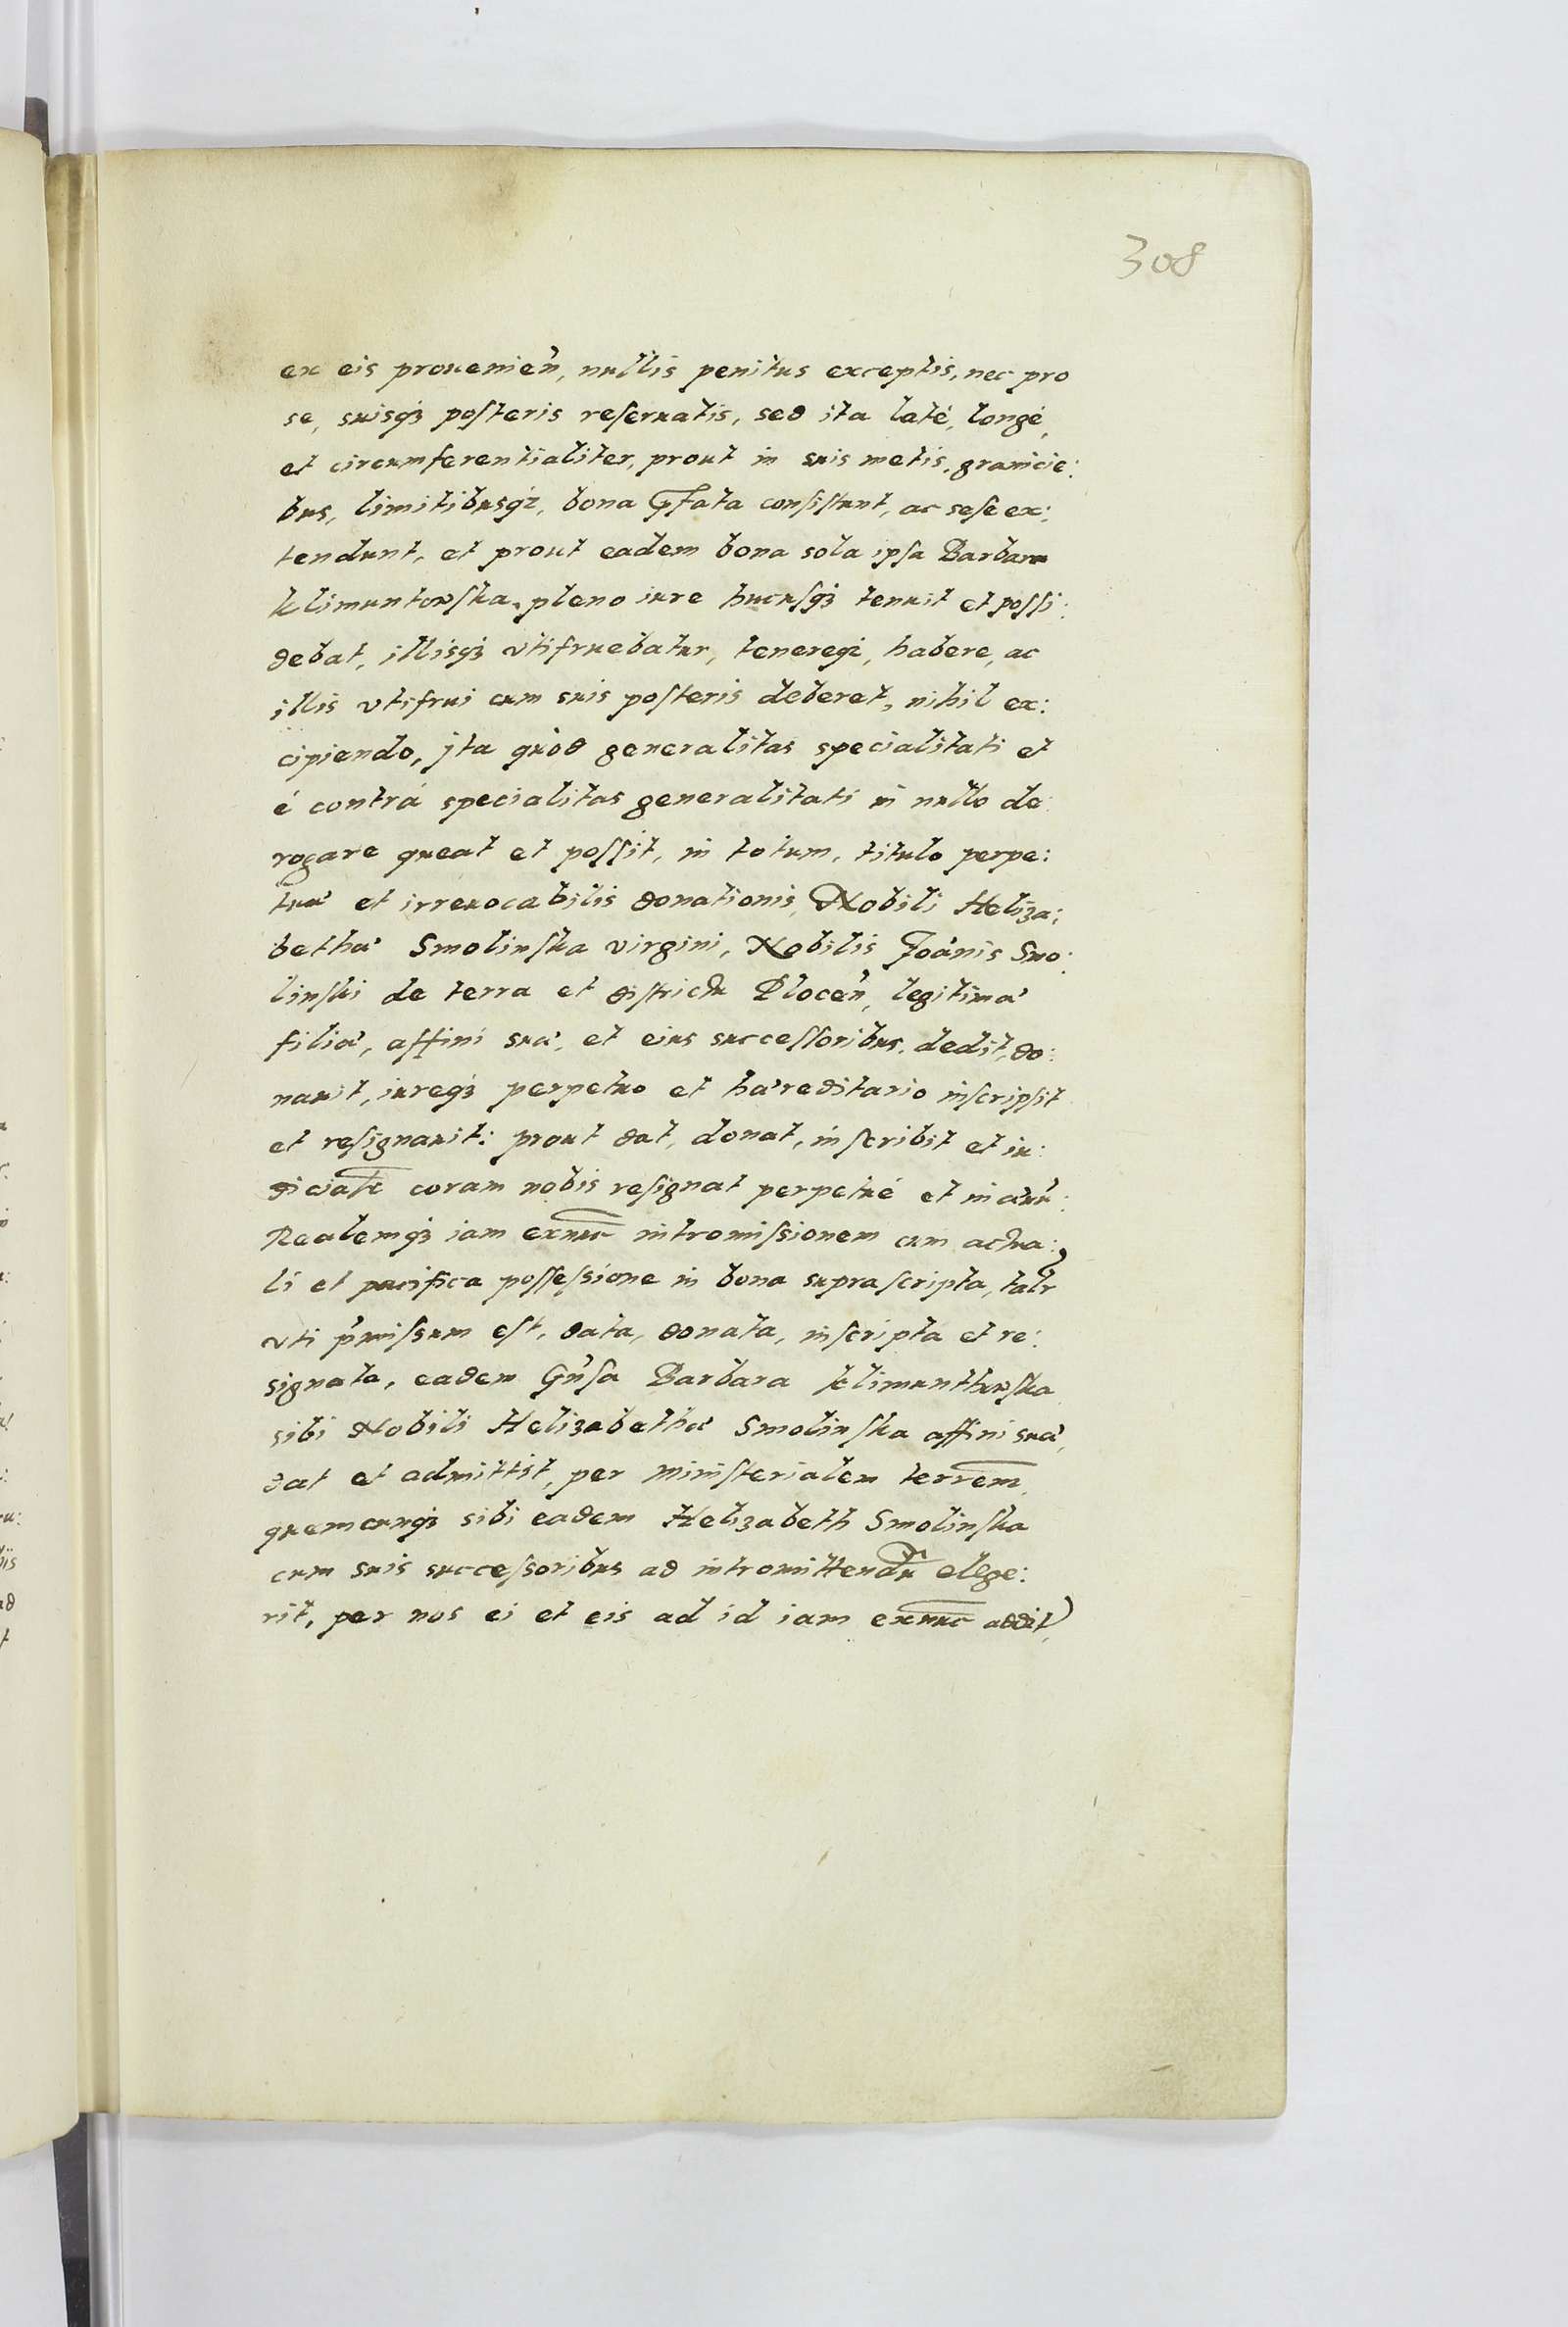 308
ex eis prouenień, nullis penitus exceptis, nec pro
se, suisqȝ poſteris reſeruatis, sed ita latè, longè,
et circumferentialiter, prout in suis metis, granicie:
bus, limitibusqȝ, bona pfata conſiſtunt, ac seſe ex:
tendunt, et prout eadem bona sola ipſa Barbara
Klimuntowſka, pleno iure hucuſqȝ tenuit et poſſi:
debat, illisqȝ vtifruebatur, tenereqȝ, habere, ac
illis vtifrui cum suis poſteris deberet, nihil ex:
cipiendo, jta quòd generalitas specialitati et
è contrà specialitas generalitati in nullo de:
rogare queat et poſſit, in totum, titulo perpe:
tuæ et irreuocabilis donationis, Nobili Heliza:
bethæ Smolinſka virgini, Nobilis Joānis Smo:
linſki de terra et diſtrictu Ploceń, legitimæ
filiæ, affini suæ, et eius succeſſoribus, dedit, do:
nauit, iureqȝ perpetuo et hæreditario inſcripſit
et reſignauit: prout dat, donat, inſcribit et iu:
diciałr coram nobis reſignat perpetuè et in æuū:
Realemqȝ iam exnūc intromiſsionem cum actua:
li et pacifica poſſeſsione in bona supraſcripta, talr
vti p̓miſsum eſt, data, donata, inſcripta et re:
signata, eadem Gn̓ſa Barbara Klimunthowſka
sibi Nobili Helizabethæ Smolinſka affini suæ,
dat et admittit, per miniſterialem terrēm
quemcunqȝ sibi eadem Helizabeth Smolinſka
cum suis succeſsoribus ad intromittendū elege:
rit, per nos ei et eis ad id iam exnūc addit,